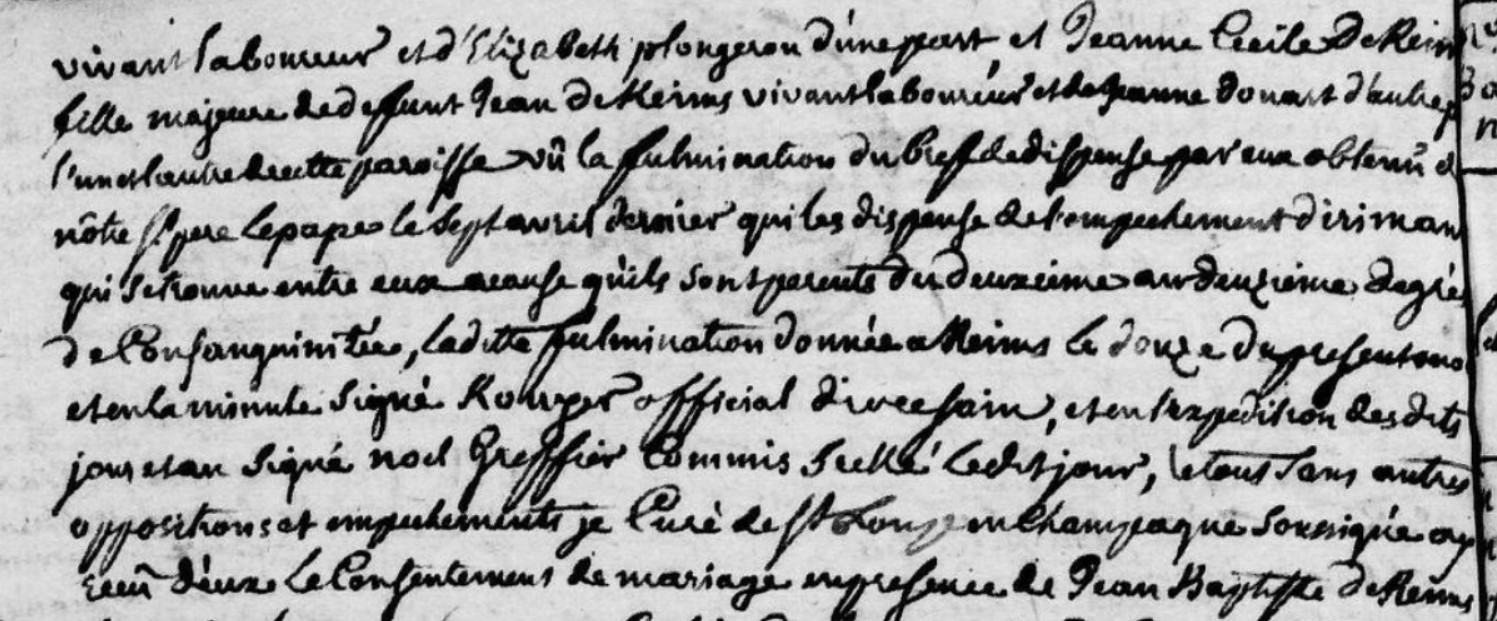 vivant laboureur et d'Elizabeth plongeron d'une part, et Jeanne Cecile De Reim
fille majeure de deffunt Jean De Reims vivant laboureur et de Jeanne Douart d'autre p
l'un et l'autre de cette paroisse vû la fulmination du bref de dispense par eux obtenû d
nôtre st pere le pape le sept avril dernier qui les dispense de l'empechement diriman
qui se trouve entre eux a cause qu'ils sont parents du deuxeime au deuxieme degré
de Consanguinitée, laditte fulmination donnée a Reims le douze du present mo
et en la minute signé official diocesain, et en l'expedition des dits
jour et an signé noel Greffier Commis scellé ledit jour, le tout sans autres
oppositions et empechements je Curé de st Loup en Champagne soussigné ay
reçû d'eux le Consentement de mariage en presence de Jean Baptiste de Reims